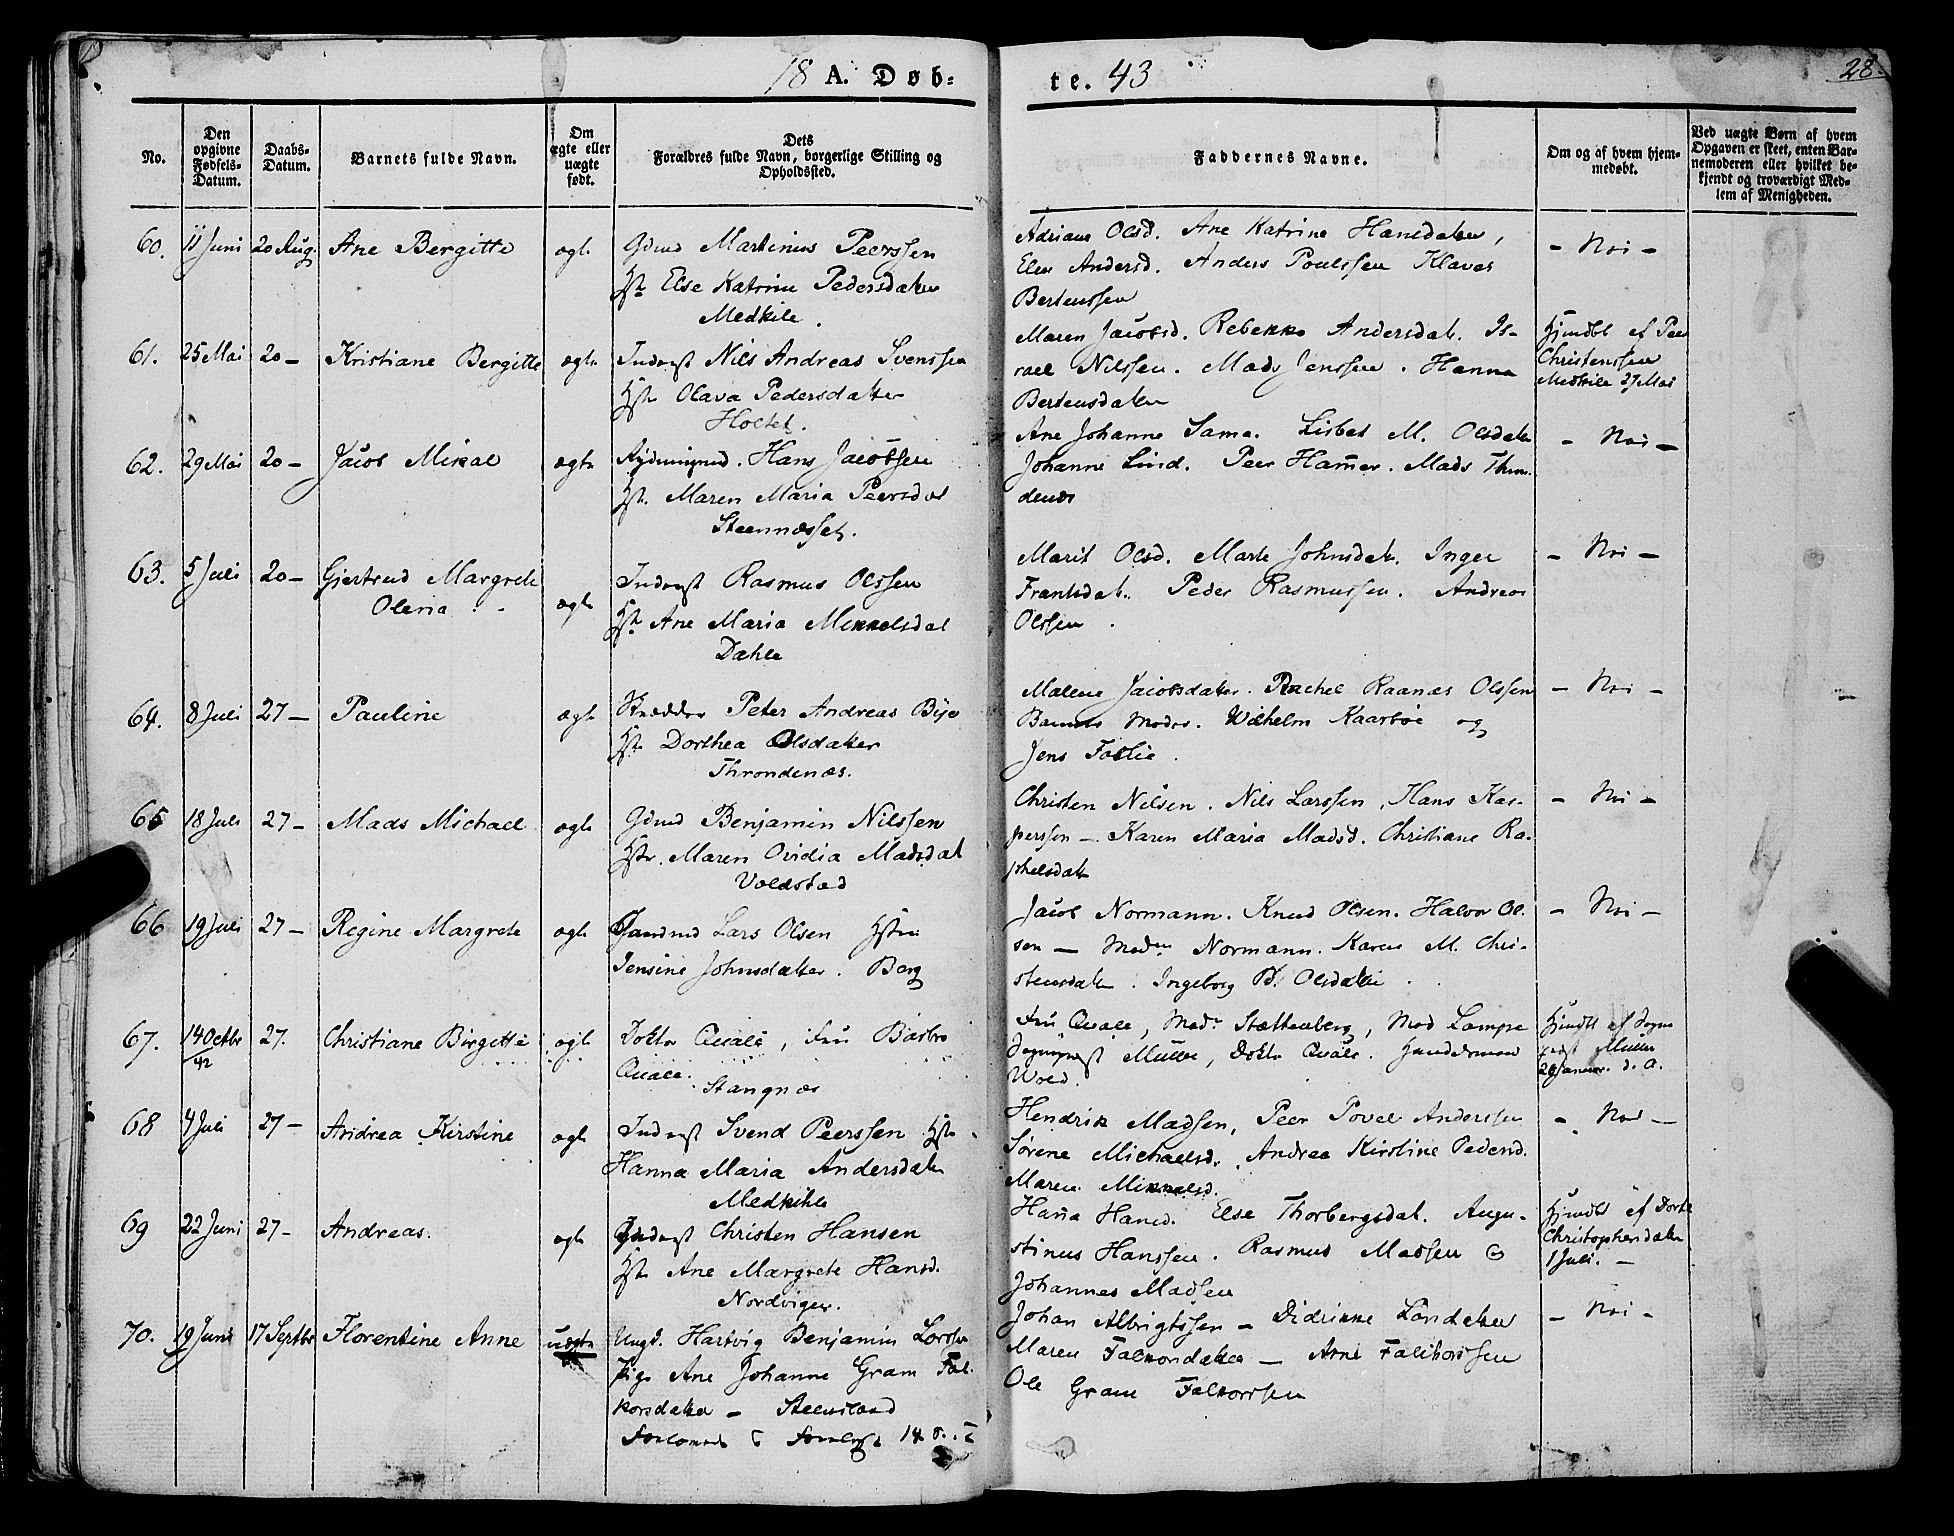 18 A. Døb-
te. 43
28.
No.
Den opgivne Fødsels-Datum.
Daabs-Datum.
Barnets fulde Navn.
Om ægte eller uægte født.
Dets Forældres fulde Navn, borgerlige Stilling og Opholdssted.
Faddernes Navne.
Om og af hvem hjem-medøbt.
Ved uægte Børn af hvem Opgaven er skeet, enten Bar-nemoderen eller hvilket be-kjendt og troværdigt Med-lem af Menigheden.
60. 11 Juni 20 Aug. Ane Bergitte ægte Gdmd Martinus Peerssen
Hst. Else Katrine Pedersdatter
Medkile.
Adriane Olsd. Ane Katrine Hansdatter,
Elen Andersd. Anders Poulssen Klaves
Bertenssen
- Nei -
61. 25 Mai 20 - Kristiane Bergitte ægte Inderst Nils Andreas Svenssen
Hst. Olava Pedersdatter
Holtet.
Maren Jacobsd. Rebekka Andersdat. Is-
rael Nilssen. Mads Jenssen. Hanna
Bertensdatter
Hjmdbt af Peer
Christenssen
Medkile 27 Mai
62. 29 Mai 20 - Jacob Mikal ægte Rydningsmd. Hans Jacobssen
Hst. Maren Maria Peersdat
Steennæsset.
Ane Johanne Sama. Lisbet M. Olsdatter
Johanne Lind. Peer Hamer. Mads Thron-
denæs
- Nei -
63. 5 Juli 20 - Gjertrud Margrete
Olena
ægte Inderst Rasmus Olssen
Hst. Ane Maria Mikkelsdat
Dahle
Marit Olsd. Marte Johnsdat. Inger
Frantsdat. Peder Rasmussen. Andreas
Olssen.
- Nei -
64. 8 Juli 27 - Pauline ægte Skrædder Peter Andreas Bye
Hst. Dorthea Olsdatter
Throndenæs.
Malene Jacobsdatter. Rachel Raanæs Olssen
Barnets Moder. Wilhelm Kaarbøe og
Jens Foslie.
- Nei -
65 18 Juli 27 - Mads Michael ægte Gdmd Benjamin Nilssen
Hstr. Maren Ovidia Madsdat
Voldstad
Christen Nilsen. Nils Larssen, Hans Kas-
persson - Karen Maria Madsd. Christiane Ra-
phelsdatt
- Nei -
66 19 Juli 27 - Regine Margrete ægte Gaardmd Lars Olsen Hstru
Jensine Johnsdatter. Berg
Jacob Normann. Knud Olsen. Halvor Ol-
sen - Madm Normann. Karen M. Chri-
stensdatter. Ingeborg B. Olsdatter
- Nei -
67. 14 Octbr 42 27. Christiane Birgitte ægte Doktor Quale, Fru Barbro
Quale. Stangnæs
Fru Quale, Madm Stoltenberg, Mad Lampe
Sogneprest Müller, Doktr Quale. Handelsmand
Wold.
Hjmdbt af Sogne
prest Müller
20 Januar. d. A.
68 4 Juli 27 - Andrea Kirstine ægte Inderst Svend Peerssen Hstr.
Hanna Maria Andersdatter
Medkihle
Hendrik Madsen, Peer Povel Anderssen
Sørene Michaelsd. Andrea Kirstine Pedersd.
Maren Mikkelsd.
- Nei -
69 22 Juni 27 - Andreas. ægte Inderst Christen Hansen
Hst. Ane Margrete Hansd.
Nordvigen.
Hanna Hansd. Else Thorbergsdat. Augu-
stinus Hanssen. Rasmus Madsen &
Johannes Madsen
Hjmdbt af Dorte
Christophersdatter
1 Juli. -
70. 19 Juni 17 Septbr Florentine Anne uægte Ungk. Hartvig Benjamin Larssen
Pige Ane Johanne Gram Fal-
korsdatter - Steensland
Johan Albrigtssen - Didrikke Lønd
Maren Falkorsdatter - Arne Falkorssen
Ole Gram Falkorssen
- Nei -